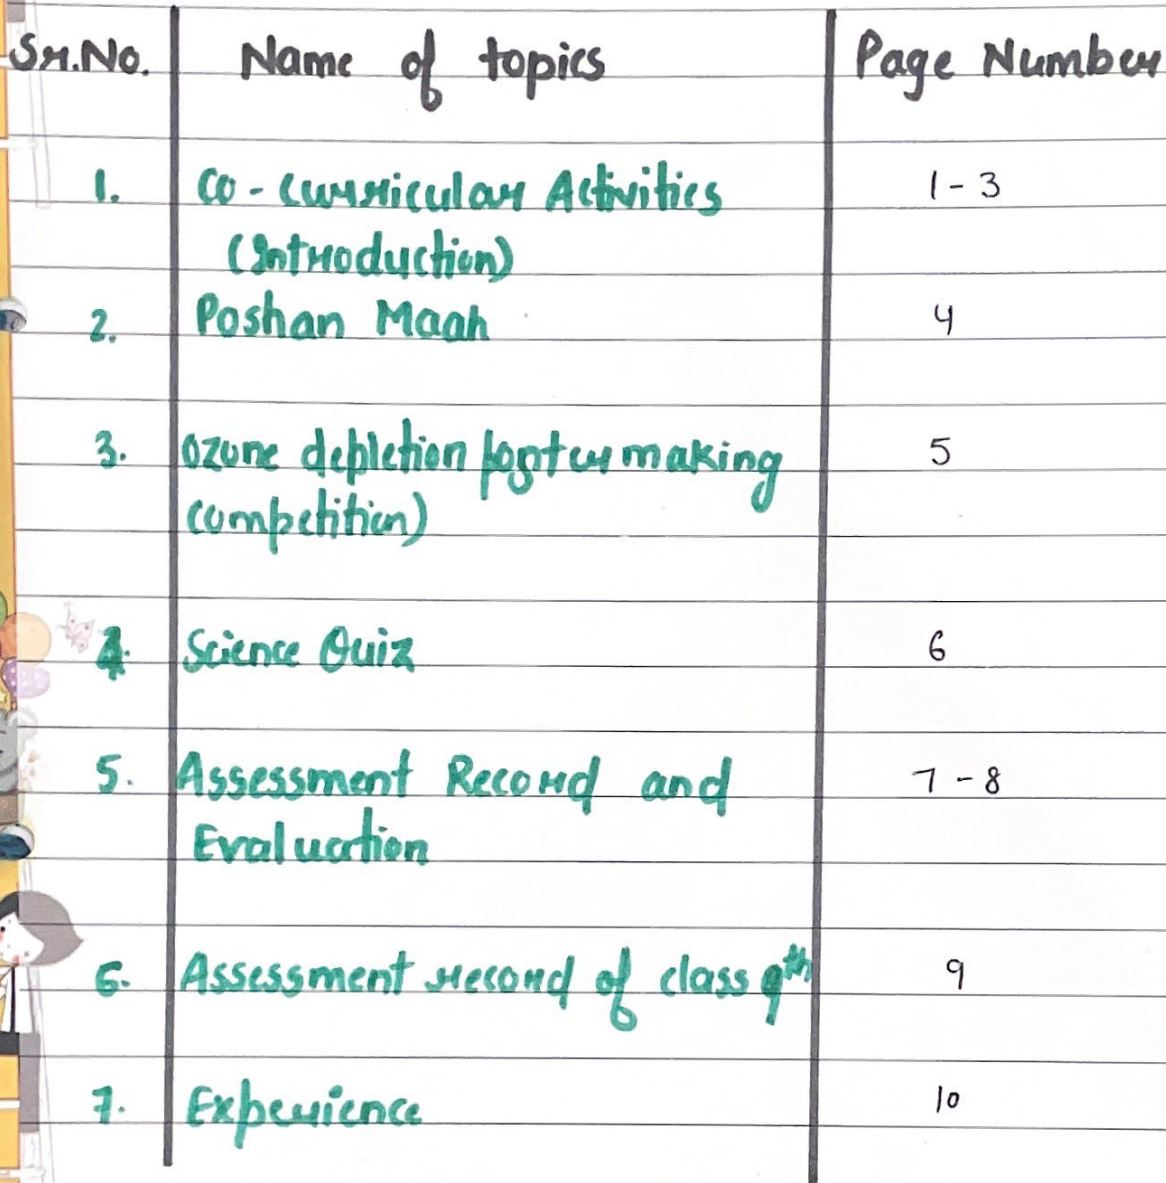 Sr.No. Name of topics Page Number
1. Co-Curricular Activities 1-3
(Introduction)
2. Poshan Maah 4
3. Ozone depletion poster making 5
Competition)
4. Science Quiz 6
5. Assessment Record and 7-8
Evaluation
6. Assessment record of class 9th 9
7. Experience 10